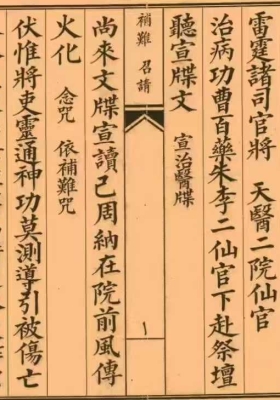 雷霆諸司官將　天醫二院仙官
治病功曹百藥朱李二仙官下赴祭壇
聽宣牒文　宣治醫牒
補難　召請
尚來文牒宣讀已周納在院前風傳
火化　念咒　依補難咒
伏惟將吏靈通神功莫測導引被傷亡